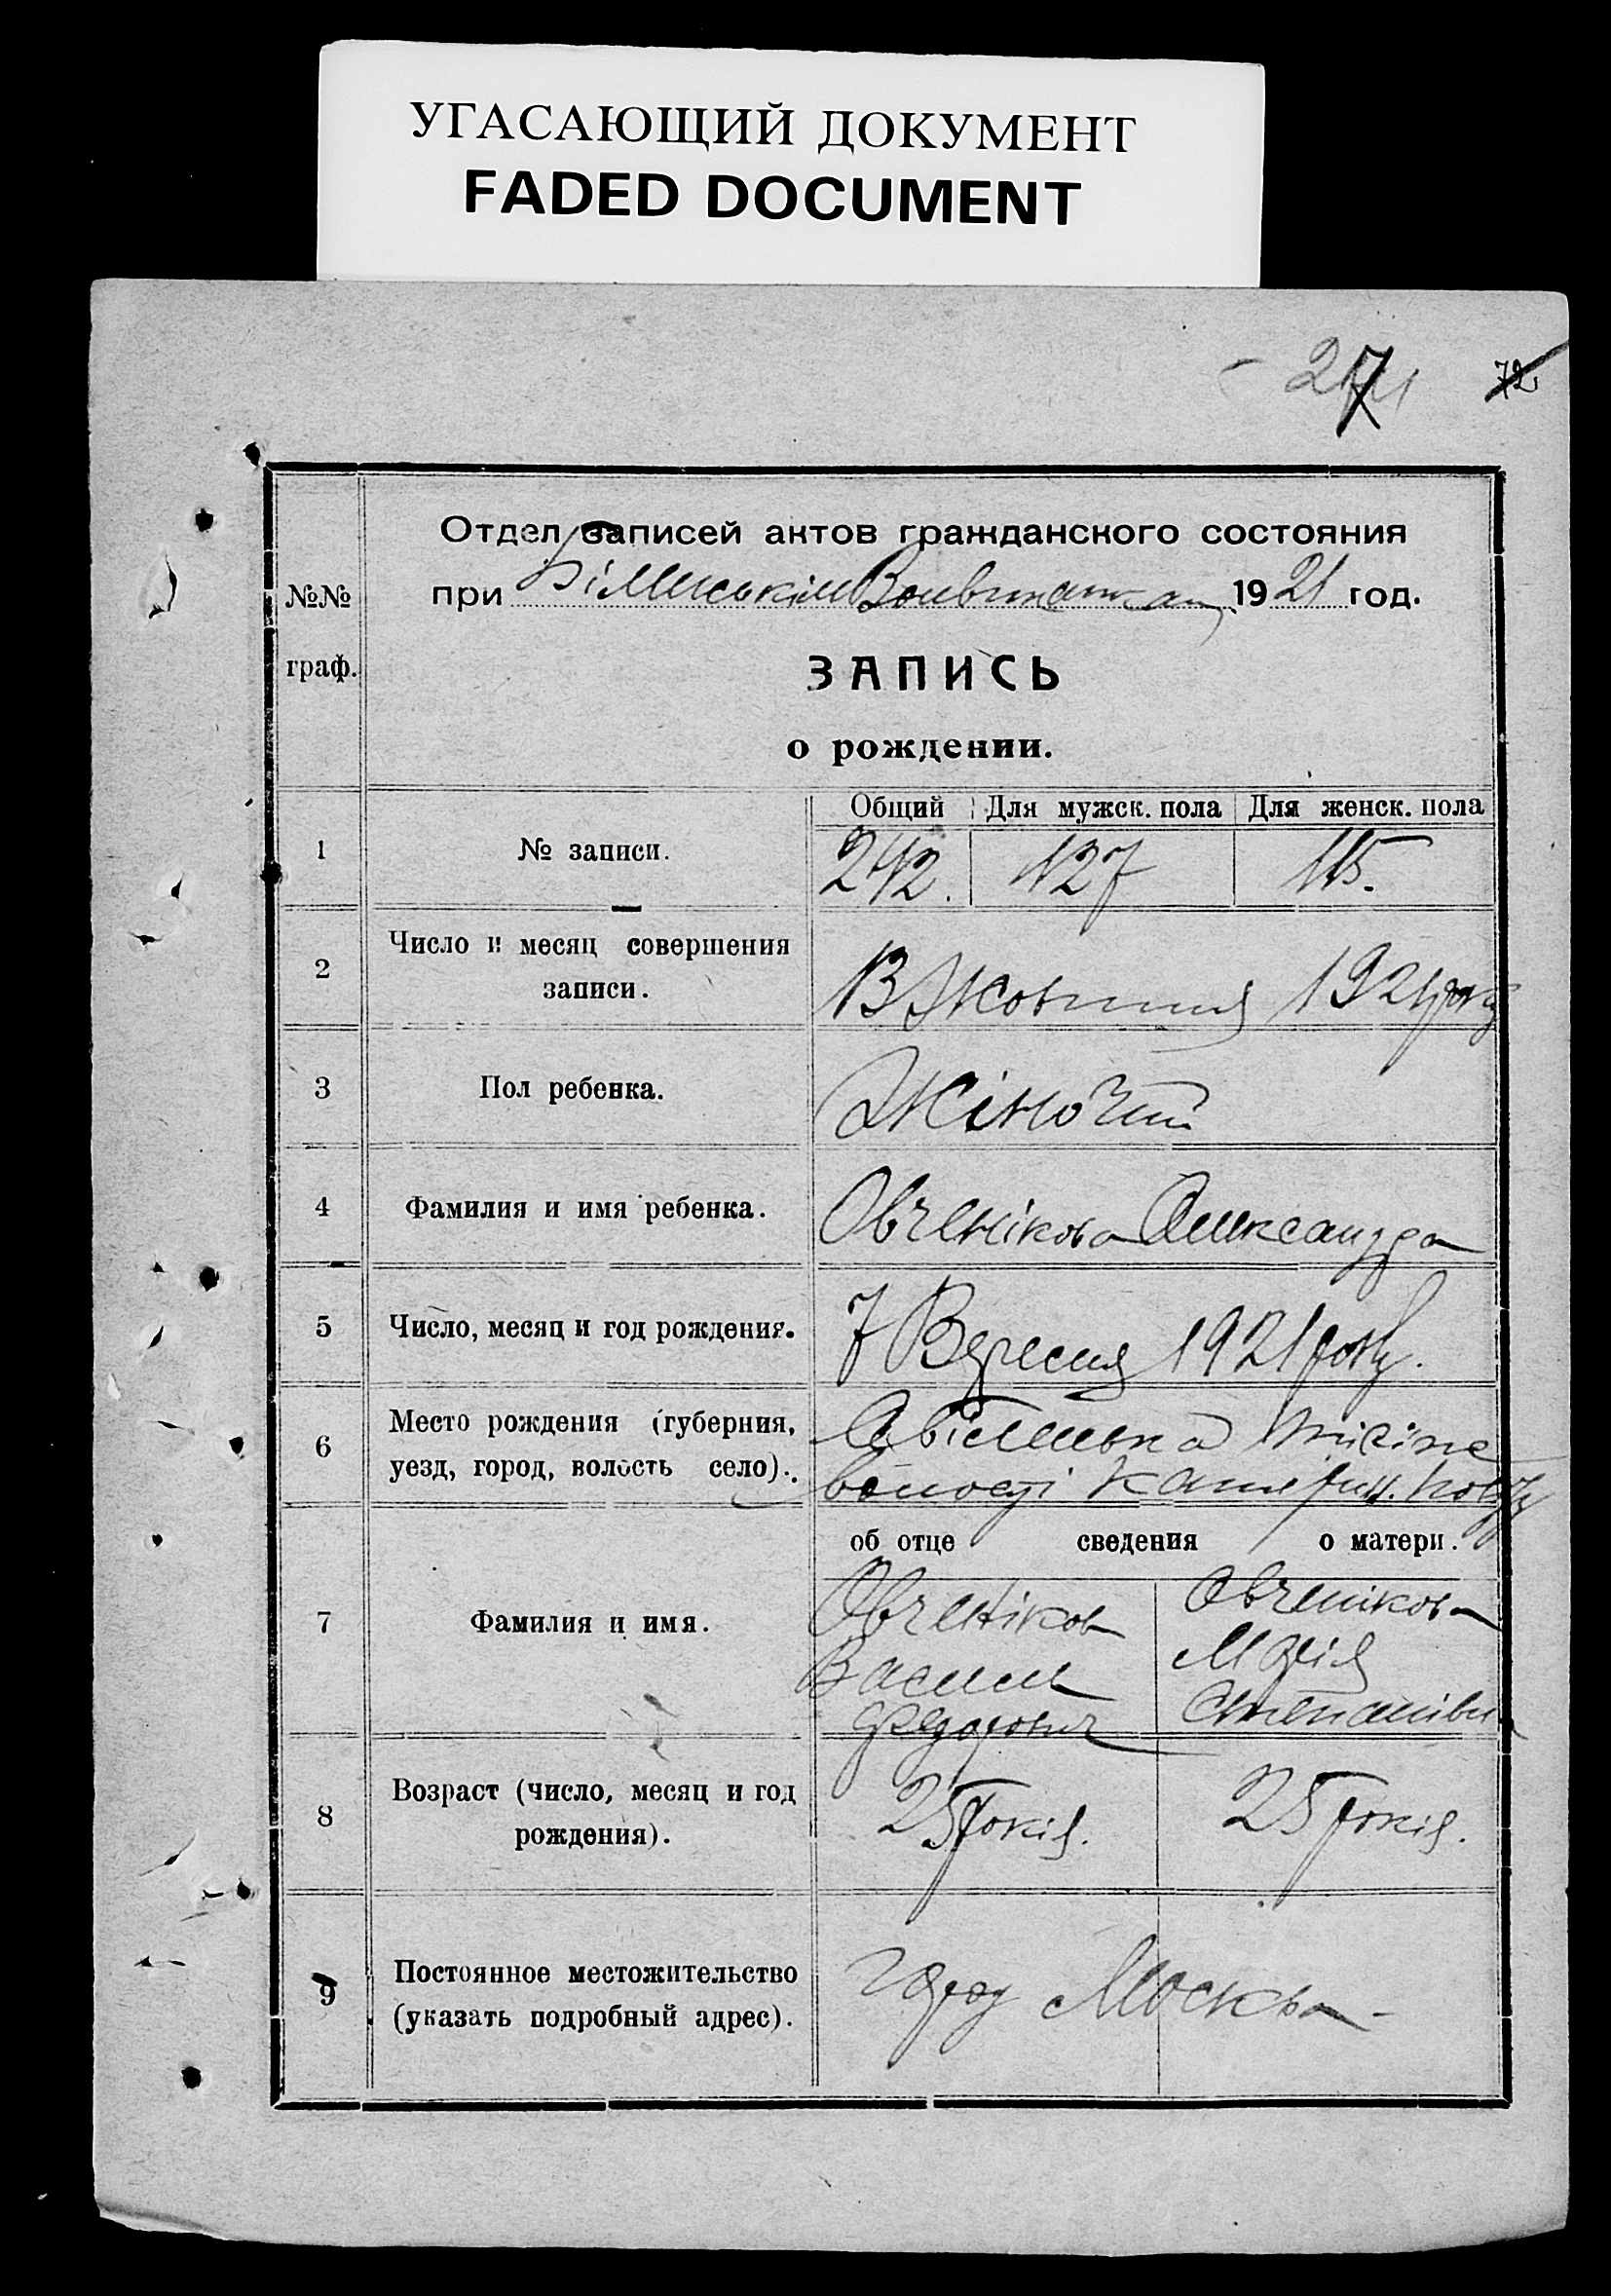 УГАСАЮЩИЙ ДОКУМЕНТ
FADED DOCUMENT
72
№№ граф.
Отдел записей актов гражданского состояния
при 1921 год.
ЗАПИСЬ
о рождении.
Общий Для мужск. пола Для женск. пола
1 № записи. 242. 127 115.
2 Число и месяц совершения
записи. 13 Жовтня 1921 року
3 Пол ребенка. Жіночий
4 Фамилия и имя ребенка. Овченікова Олександра
5 Число, месяц и год рождения. 7 Вересня 1921 року.
6 Место рождения (губерния,
уезд, город, волость село).
об отце сведения о матери.
7 Фамилия и имя.
Овченіков Овченікова
Василь Марія
Федорович Степанівна
8 Возраст (число, месяц и год
рождения). 25 років. 25 років.
9 Постоянное местожительство
(указать подробный адрес). город Москва